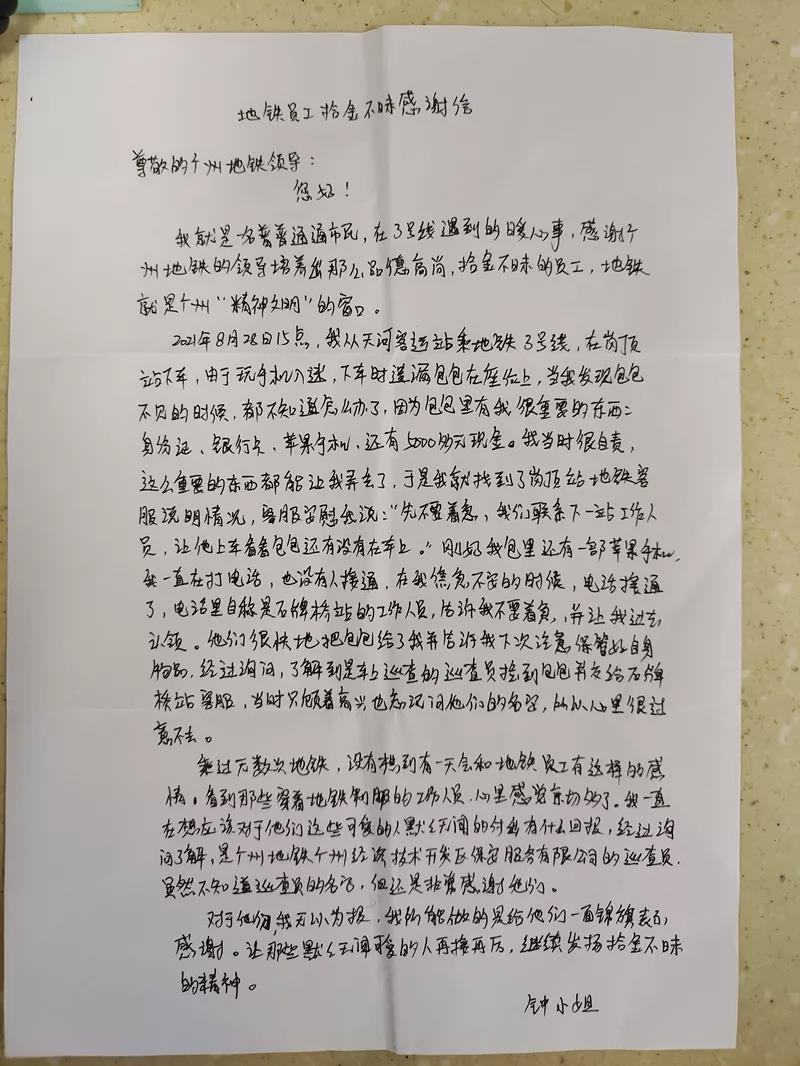 地铁员工拾金不昧感谢信
尊敬的广州地铁领导：
您好！
我就是名普普通通市民，在3号线遇到的暖心事，感谢广
州地铁的领导培养出那么品德高尚，拾金不昧的员工，地铁
就是广州“精神文明”的窗口。
2021年8月28日15点，我从天河客运站乘地铁3号线，在岗顶
站下车，由于玩手机入迷，下车时遗漏包包在座位上，当我发现包包
不见的时候，都不知道怎么办了，因为包包里有我很重要的东西：
身份证、银行卡、苹果手机、还有5000多元现金。我当时很自责，
这么重要的东西都能让我弄丢了，于是我就找到了岗顶站地铁客
服说明情况，客服安慰我说：“先不要着急，我们联系下一站工作人
员，让他上车看看包包还有没有在车上。”刚好我包里还有一部苹果手机，
我一直在打电话，也没有人接通，在我焦急不安的时候，电话接通
了，电话里自称是石牌桥站的工作人员，告诉我不要着急，并让我过去
认领。他们很快地把包包给了我并告诉我下次注意保管好自身
物品，经过询问，了解到是车上巡查的巡查员捡到包包并交给石牌
桥站客服，当时只顾着高兴也忘记问他们的名字，所以心里很过
意不去。
乘过无数次地铁，没有想到有一天会和地铁员工有这样的感
情。看到那些穿着地铁制服的工作人员，心里感觉亲切多了。我一直
在想应该对于他们这些可爱的人默默无闻的付出有什么回报，经过询
问了解，是广州地铁广州经济技术开发区保安服务有限公司的巡查员.
虽然不知道巡查员的名字，但还是非常感谢他们。
对于他们，我无以为报，我所能做的是给他们一面锦旗表示
感谢。让那些默默无闻可爱的人再接再厉，继续发扬拾金不昧
的精神。
钟小姐